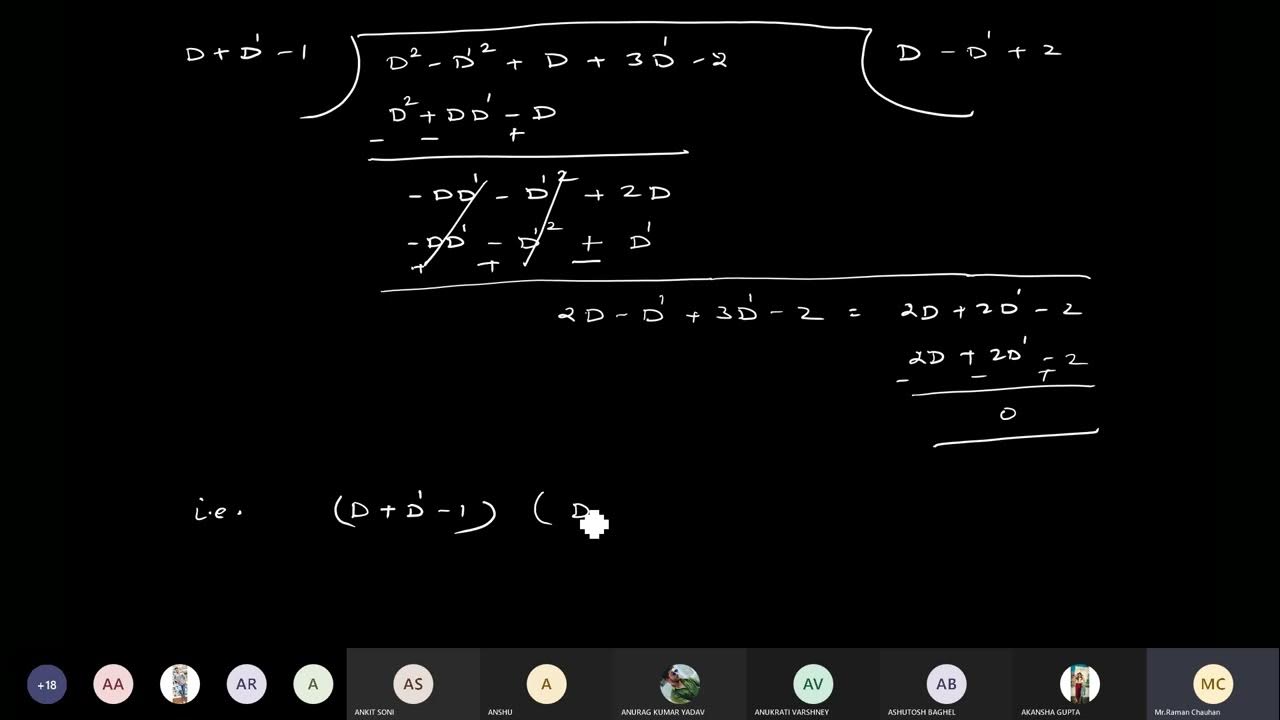 D + D' - 1 ) D² - D'² + D + 3D' - 2 ( D - D' + 2
D² + DD' - D
- - +
- DD' - D'² + 2D
- DD' - D'² + D'
+ + -
2D - D' + 3D' - 2 = 2D + 2D' - 2
2D + 2D' - 2
- - +
0
i.e. (D + D' - 1) ( D
+18 AA AR A AS A AV AB MC
ANKIT SONI ANSHU ANURAG KUMAR YADAV ANUKRATI VARSHNEY ASHUTOSH BAGHEL AKANSHA GUPTA Mr.Raman Chauhan